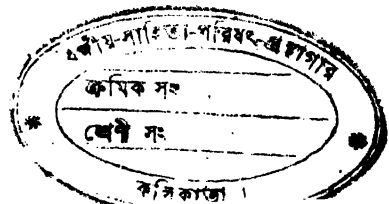 বঙ্গীয়-সাহিত্য-পরিষৎ-গ্রন্থাগার
ক্রমিক সং
শ্রেণী সং
* *
কলিকাতা ।